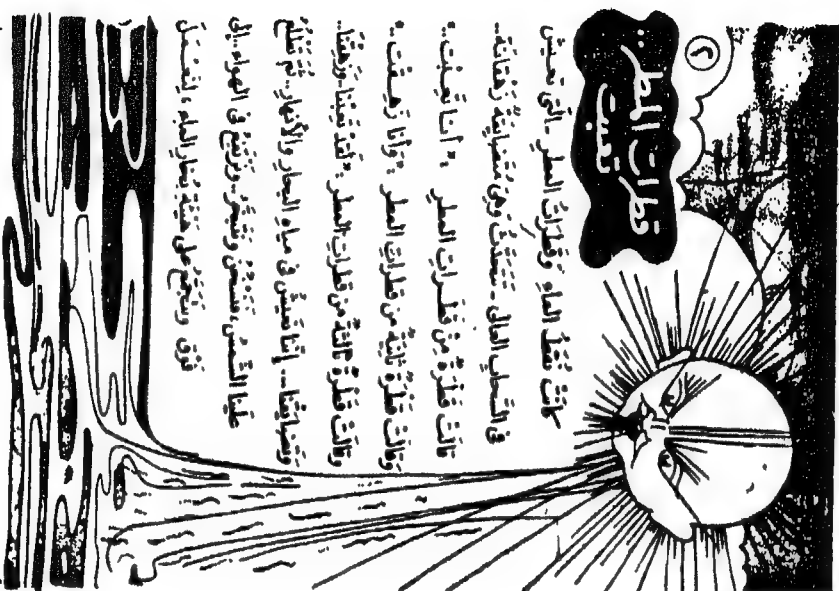 ٢
قطرات المطر..
تعبت
كَانَتْ نُقَطُ الماءِ وَقَطَرَاتُ المطرِ ـ الَّتِى تَعِيشُ
فى السَّحابِ العالى ـ تَتَحَدَّثُ وَهِىَ مُتَضَايِقَةٌ زَهْقَانَةٌ..
قَالَتْ قَطْرَةٌ مِنْ قَطَـراتِ المطرِ : « أنـا تَعِبْـت.. »
وَقَالَتْ قَطْرَةٌ ثَانِيَةٌ مِنْ قَطَراتِ المطرِ : « وَأنا زَهِـقْـت.. »
وَقَالَتْ قَطْرَةٌ ثالثةٌ مِن قَطَراتِ المطرِ : « لَقَدْ تَعِبْنَا.. وَزَهِقْنَا..
وَتَضَايَقْنَا... إنَّنَا نَعِيشُ فى مياهِ البحارِ والأنهارِ.. ثم تَطْلُعُ
عَلينا الشَّمسُ ، فَنَسْخُنُ وَنَتَبَخَّرُ.. وَنَرْتَفِعُ فى الهواءِ.. إلى
فَوْق وَنَتَجَمَّعُ على هَيْئَةِ بُخَارِ الماءِ ،